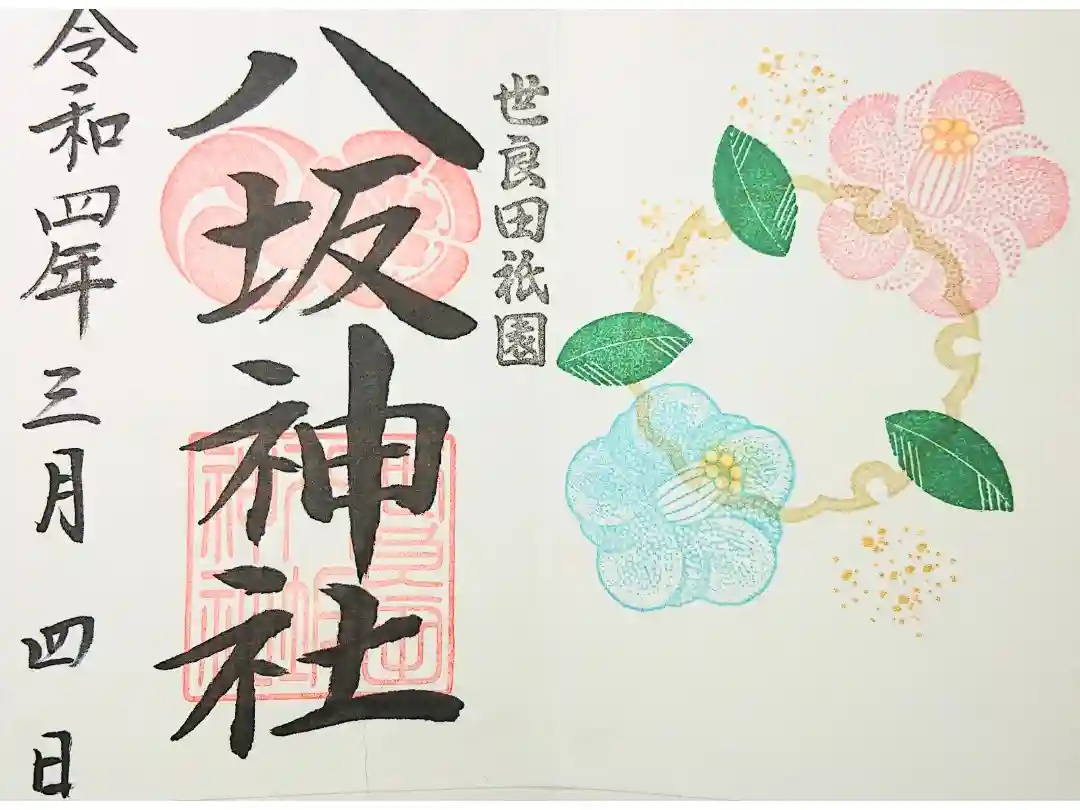 世良田祇園
八坂神社
令和四年三月四日